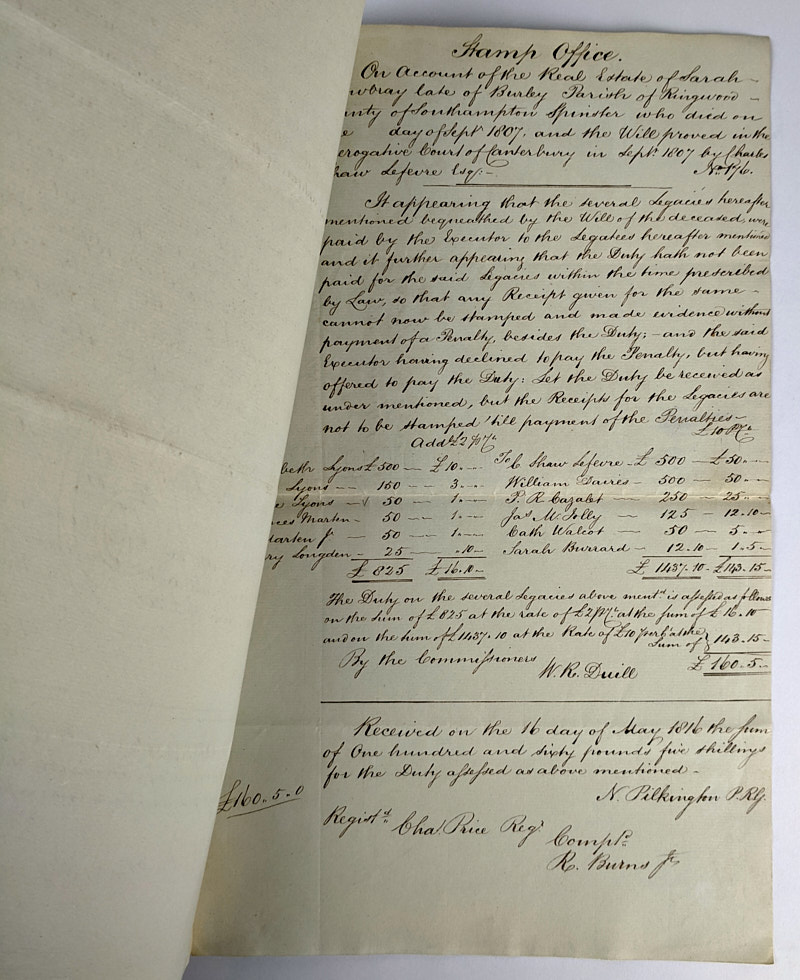 Stamp Office.
On Account of the Real Estate of Sarah
wbray late of Burley Parish of Ringwood
unty of Southampton Spinster who died on
e day of Septr 1807, and the Will proved in the
erogative Court of Canterbury in Septr. 1807 by Charles
haw Lefevre Esqr:- No. 176.
It appearing that the several Legacies hereafter
mentioned bequeathed by the Will of the deceased, were
paid by the Executor to the Legatees hereafter mentioned
and it further appearing that the Duty hath not been
paid for the said Legacies within the time prescribed
by Law, so that any Receipt given for the same -
cannot now be stamped and made evidence without
payment of a Penalty, besides the Duty; - and the said
Executor having declined to pay the Penalty, but having
offered to pay the Duty: Let the Duty be received as
under mentioned, but the Receipts for the Legacies are
not to be stamped 'till payment of the Penalties -
£10 PCt
£2
Lyons £500 - £10 To C Shaw Lefevre - £500 - £50
Lyons 150 3 William Daires - 500 - 50
Lyons 50 1 P. R Cazalet - 250 - 25
ces Marten - 50 1 Jas M. Jolly - 125 - 12.10
arten Jr 50 1 Cath Walcot - 50 5
ry Longden - 25 .10 Sarah Burrard - 12.10 - 1.5
£825 £16.10 £1437.10 - £143.15
The Duty on the several Legacies above mentd is assessed as follows
on the Sum of £825 at the rate of £2 PCt at the sum of £16.10
and on the Sum of £1437.10 at the Rate of £10 per Ct at the
Sum of } 143.15
£160.5
By the Commissioners
W. R. Duill
Received on the 16 day of May 1816 the Sum
of One hundred and sixty pounds five shillings
for the Duty assessed as above mentioned -
£160.5.0
N. Pilkington
Registd Chas. Price Regr
Comptr
R. Burns Jr